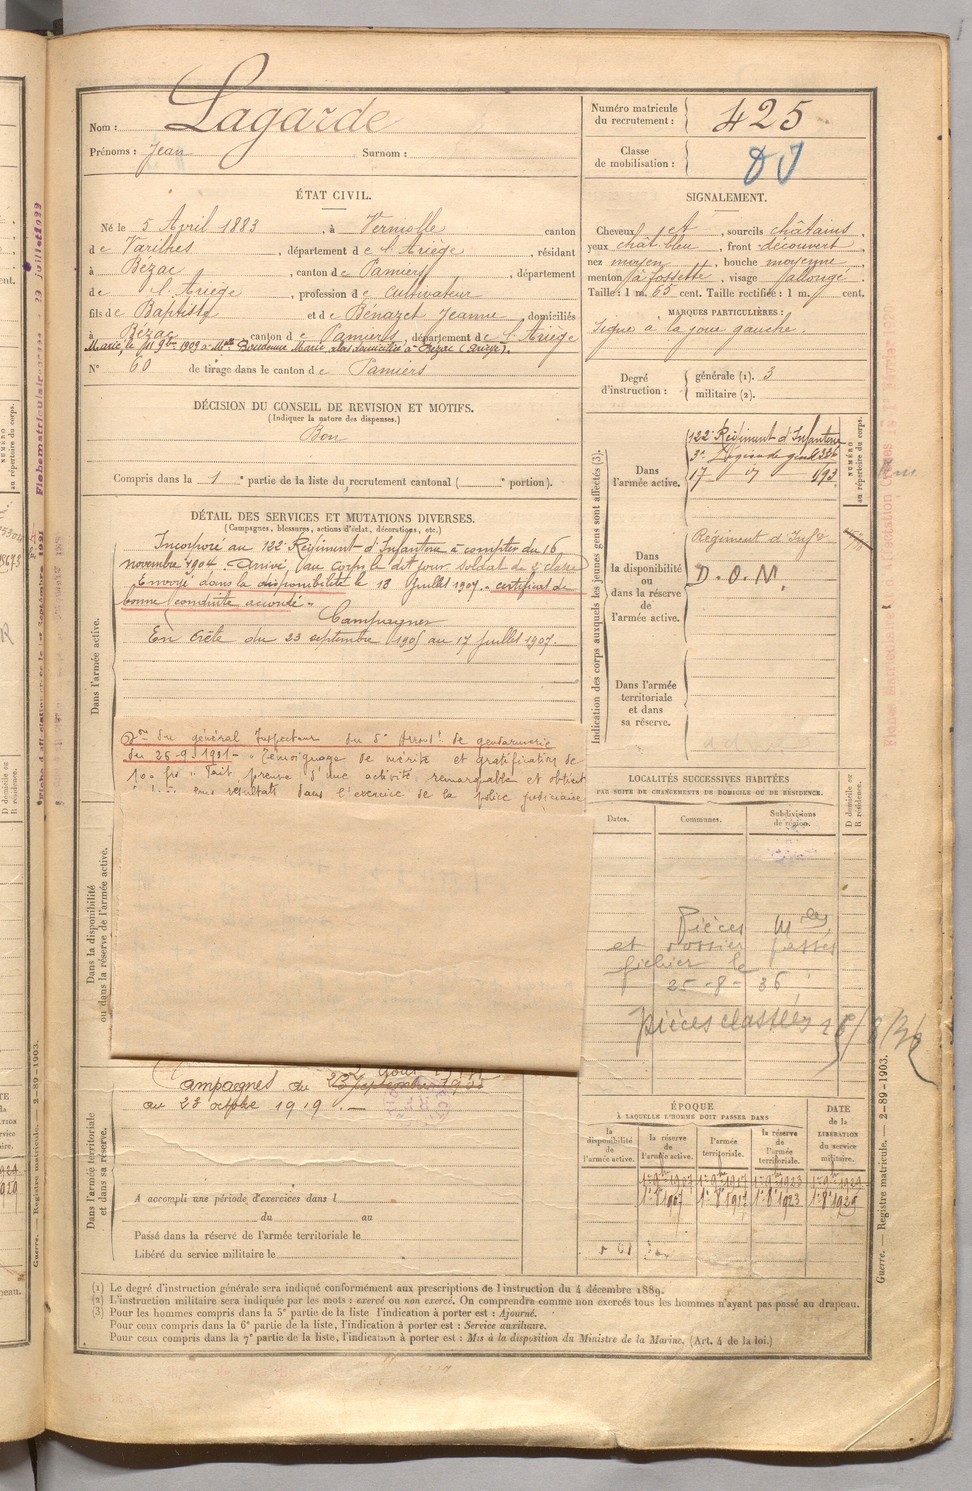 Nom : Lagarde
Prénoms : Jean Surnom :
Numéro matricule du recrutement : 425
Classe de mobilisation :
ÉTAT CIVIL.
Né le 5 Avril 1883, à Verniolle canton
de Varilhes, département de l'Ariège, résidant
à Bézac, canton de Pamiers, département
de l'Ariège, profession de cultivateur
fils de Baptiste et de Bénazet Jeanne, domiciliés
à Bézac canton de Pamiers, département de l'Ariège
Marié le 9bre 1909 à Mlle Marie, domiciliée à Bézac (Ariège).
N° 60 de tirage dans le canton de Pamiers
SIGNALEMENT.
Cheveux et, sourcils châtains,
yeux chât. bleu, front découvert
nez moyen, bouche moyenne
menton à fossette, visage allongé
Taille : 1 m. 65 cent. Taille rectifiée : 1 m. cent.
MARQUES PARTICULIÈRES :
Signe à la joue gauche.
Degré d'instruction : générale (1). 3
militaire (2).
DÉCISION DU CONSEIL DE REVISION ET MOTIFS.
(Indiquer la nature des dispenses.)
Bon
Compris dans la 1e partie de la liste du recrutement cantonal ( e portion).
DÉTAIL DES SERVICES ET MUTATIONS DIVERSES.
(Campagnes, blessures, actions d'éclat, décorations, etc.)
Dans l'armée active.
Incorporé au 122e Régiment d'Infanterie à compter du 16
novembre 1904. Arrivé au corps le dit jour soldat de 2e classe
Envoyé dans la disponibilité le 18 Juillet 1907. certificat de
bonne conduite accordé
Campagnes
En Crète du 23 septembre 1905 au 17 Juillet 1907.
Don du général Inspecteur du 5e Arrondt de gendarmerie
du 26-9-1931 - Témoignage de mérite et gratification de
100 frs. Fait preuve d'une activité remarquable et obtient
résultats dans l'exercice de la police judiciaire
Dans la disponibilité ou dans la réserve de l'armée active.
Campagnes du
au 23 octobre 1919.-
Dans l'armée territoriale et dans sa réserve.
A accompli une période d'exercices dans l
du au
Passé dans la réserve de l'armée territoriale le
Libéré du service militaire le
Indication des corps auxquels les jeunes gens sont affectés (3).
Dans l'armée active.
122e Régiment d'Infanterie
NUMÉRO au répertoire du corps.
Dans la disponibilité ou dans la réserve de l'armée active.
Régiment d'Infie
D.O.M.
Dans l'armée territoriale et dans sa réserve.
LOCALITÉS SUCCESSIVES HABITÉES
PAR SUITE DE CHANGEMENTS DE DOMICILE OU DE RÉSIDENCE.
Dates. Communes. Subdivisions de région. D domicile ou R résidence.
Pièces Mles
et dossier passés
fichier le
25-8-36
Pièces classées
ÉPOQUE
À LAQUELLE L'HOMME DOIT PASSER DANS
DATE de la LIBÉRATION du service militaire.
la disponibilité de l'armée active. la réserve de l'armée active. l'armée territoriale. la réserve de l'armée territoriale.
(1) Le degré d'instruction générale sera indiqué conformément aux prescriptions de l'instruction du 4 décembre 1889.
(2) L'instruction militaire sera indiquée par les mots : exercé ou non exercé. On comprendra comme non exercés tous les hommes n'ayant pas passé au drapeau.
(3) Pour les hommes compris dans la 5e partie de la liste l'indication à porter est : Ajourné.
Pour ceux compris dans la 6e partie de la liste, l'indication à porter est : Service auxiliaire.
Pour ceux compris dans la 7e partie de la liste, l'indication à porter est : Mis à la disposition du Ministre de la Marine. (Art. 4 de la loi.)
Guerre. — Registre matricule. — 2-89-1903.